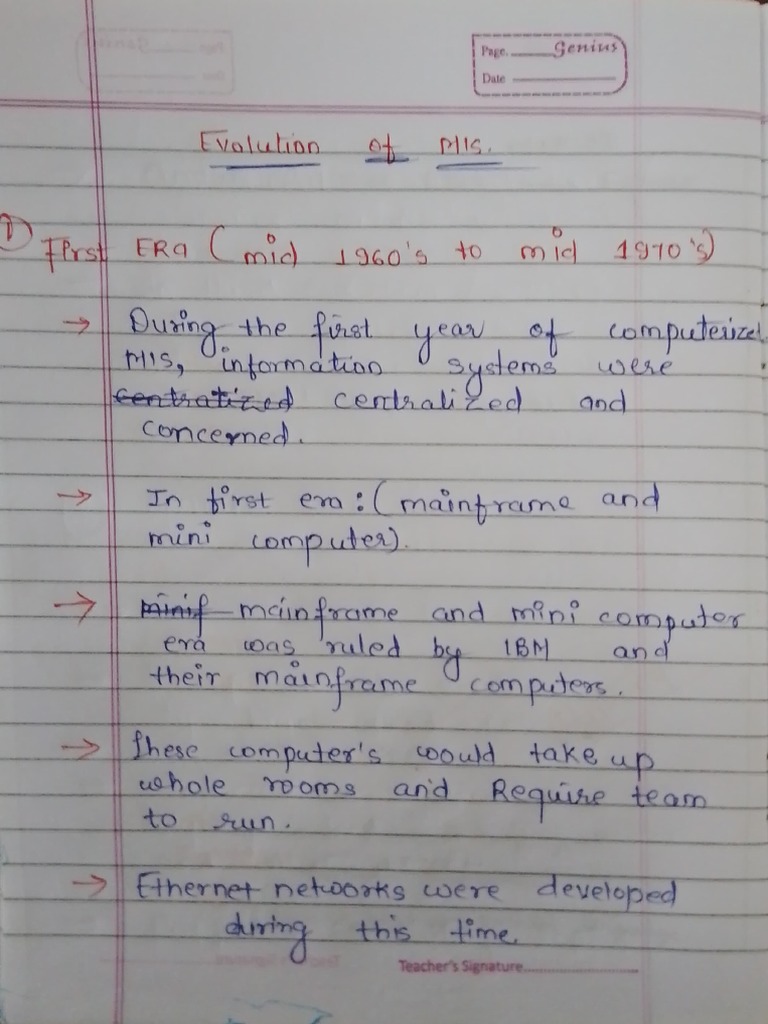 Page. Genius
Date
Evolution of MIS.
① First ERA (mid 1960's to mid 1970's)
→ During the first year of computerized
MIS, information systems were
centratized centralized and
concerned.
→ In first era : (mainframe and
mini computer).
→ minif mainframe and mini computer
era was ruled by IBM and
their mainframe computers.
→ These computer's would take up
whole rooms and Require team
to run.
→ Ethernet networks were developed
during this time.
Teacher's Signature